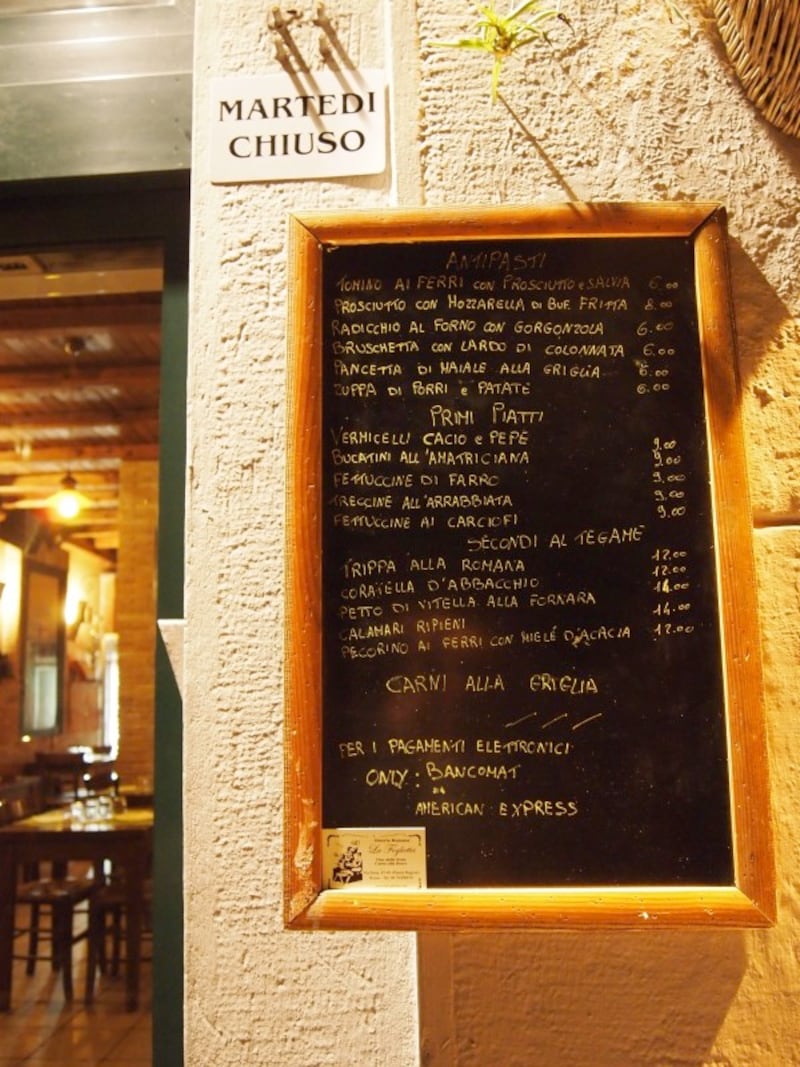 MARTEDI
CHIUSO
ANTIPASTI
TOMINO AI FERRI CON PROSCIUTTO e SALVIA 6.00
PROSCIUTTO CON MOZZARELLA DI BUF. FRITTA 8.00
RADICCHIO AL FORNO CON GORGONZOLA 6.00
BRUSCHETTA CON LARDO DI COLONNATA 6.00
PANCETTA DI MAIALE ALLA GRIGLIA 6.00
ZUPPA DI PORRI e PATATE 6.00
PRIMI PIATTI
VERMICELLI CACIO e PEPE 9.00
BUCATINI ALL'AMATRICIANA 9.00
FETTUCCINE DI FARRO 9.00
TRECCINE ALL'ARRABBIATA 9.00
FETTUCCINE AI CARCIOFI 9.00
SECONDI AL TEGAME
TRIPPA ALLA ROMANA 12.00
CORATELLA D'ABBACCHIO 12.00
PETTO DI VITELLA ALLA FORNARA 14.00
CALAMARI RIPIENI 14.00
PECORINO AI FERRI CON MIELE D'ACACIA 12.00
CARNI ALLA GRIGLIA
PER I PAGAMENTI ELETTRONICI
ONLY: BANCOMAT
AMERICAN EXPRESS
Le Fogliette